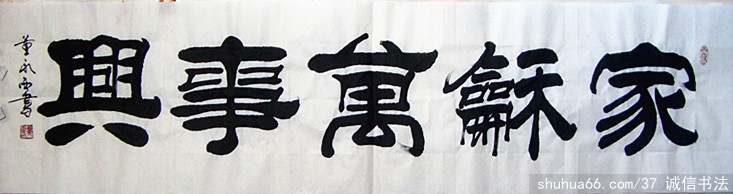 家龢萬事興
董
shuhua66.com/37 诚信书法